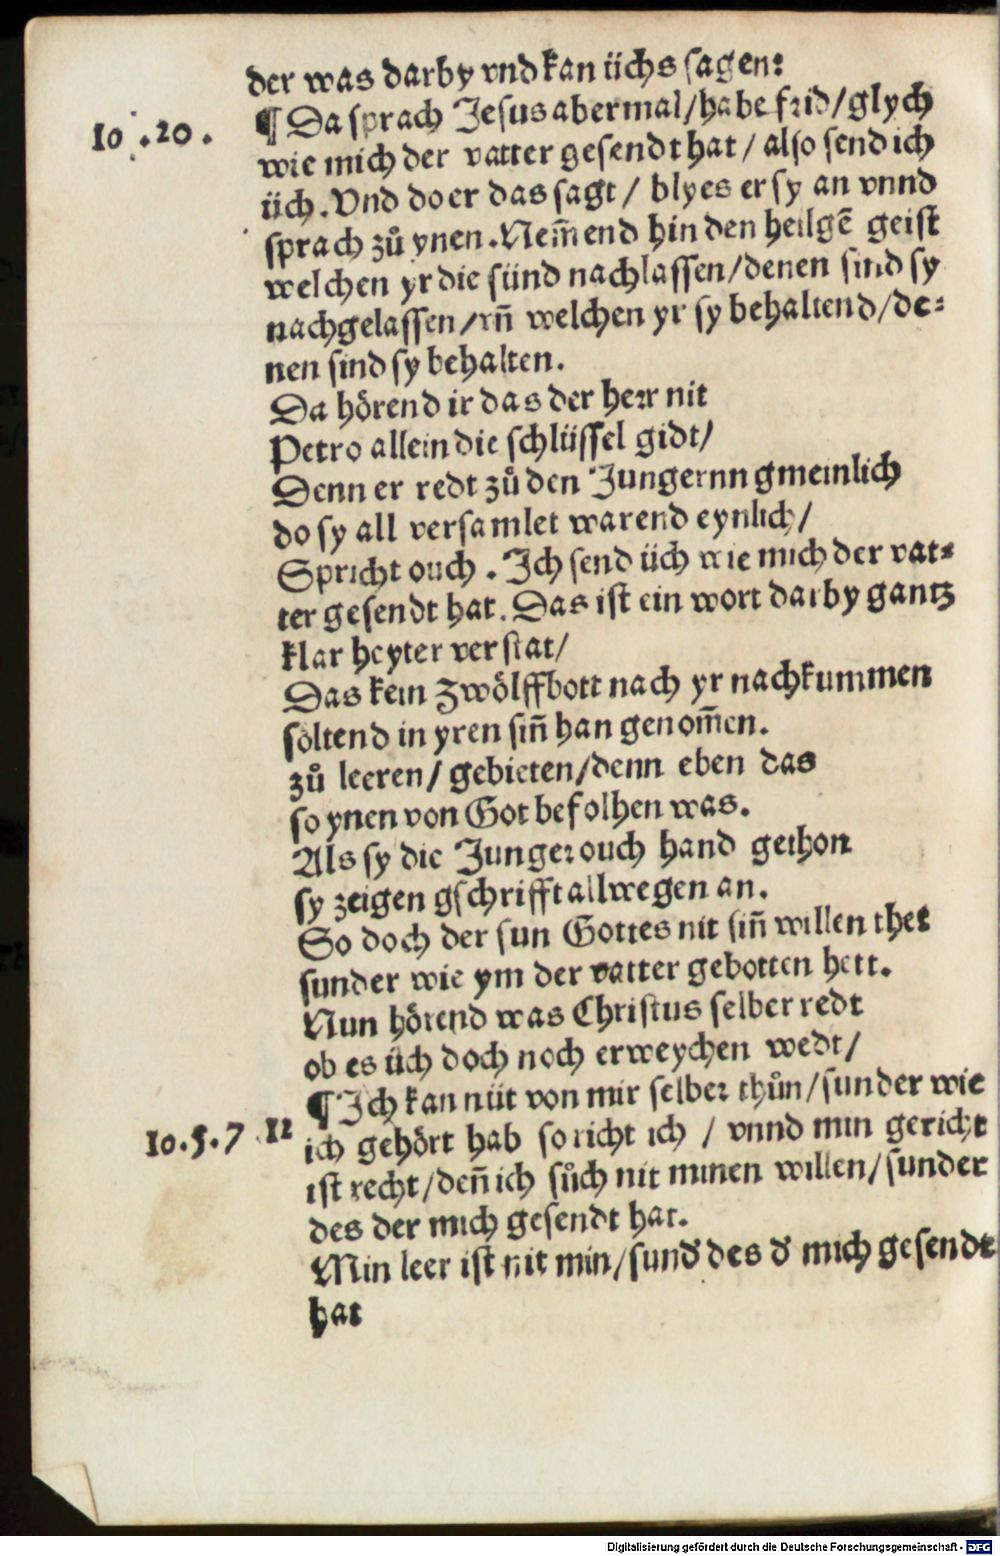 der was darby vnd kan üchs sagen:
Io .20.
¶ Da sprach Jesus abermal/habe frid/glych
wie mich der vatter gesendt hat / also send ich
üch. Vnd do er das sagt / blyes er sy an vnnd
sprach zů ynen. Nem̄end hin den heilgē geist
welchen yr die sünd nachlassen/denen sind sy
nachgelassen/vn̄ welchen yr sy behaltend/de⸗
nen sind sy behalten.
Da hörend ir das der herr nit
Petro allein die schlüssel gidt/
Denn er redt zů den Jungernn gmeinlich
do sy all versamlet warend eynlich/
Spricht ouch . Ich send üch wie mich der vat⸗
ter gesendt hat. Das ist ein wort darby gantz
klar heyter verstat/
Das kein Zwölffbott nach yr nachkummen
söltend in yren sin̄ han genom̄en.
zů leeren/ gebieten/denn eben das
so ynen von Got befolhen was.
Als sy die Junger ouch hand gethon
sy zeigen gschrifft allwegen an.
So doch der sun Gottes nit sin̄ willen thet
sunder wie ym der vatter gebotten hett.
Nun hörend was Christus selber redt
ob es üch doch noch erweychen wedt/
¶ Ich kan nüt von mir selber thůn/sunder wie
Io.5.7 12
ich gehört hab so richt ich / vnnd min gericht
ist recht/den̄ ich sůch nit minen willen/sunder
des der mich gesendt hat.
Min leer ist nit min/sund̛ des d̛ mich gesendt
hat
Digitalisierung gefördert durch die Deutsche Forschungsgemeinschaft - DFG